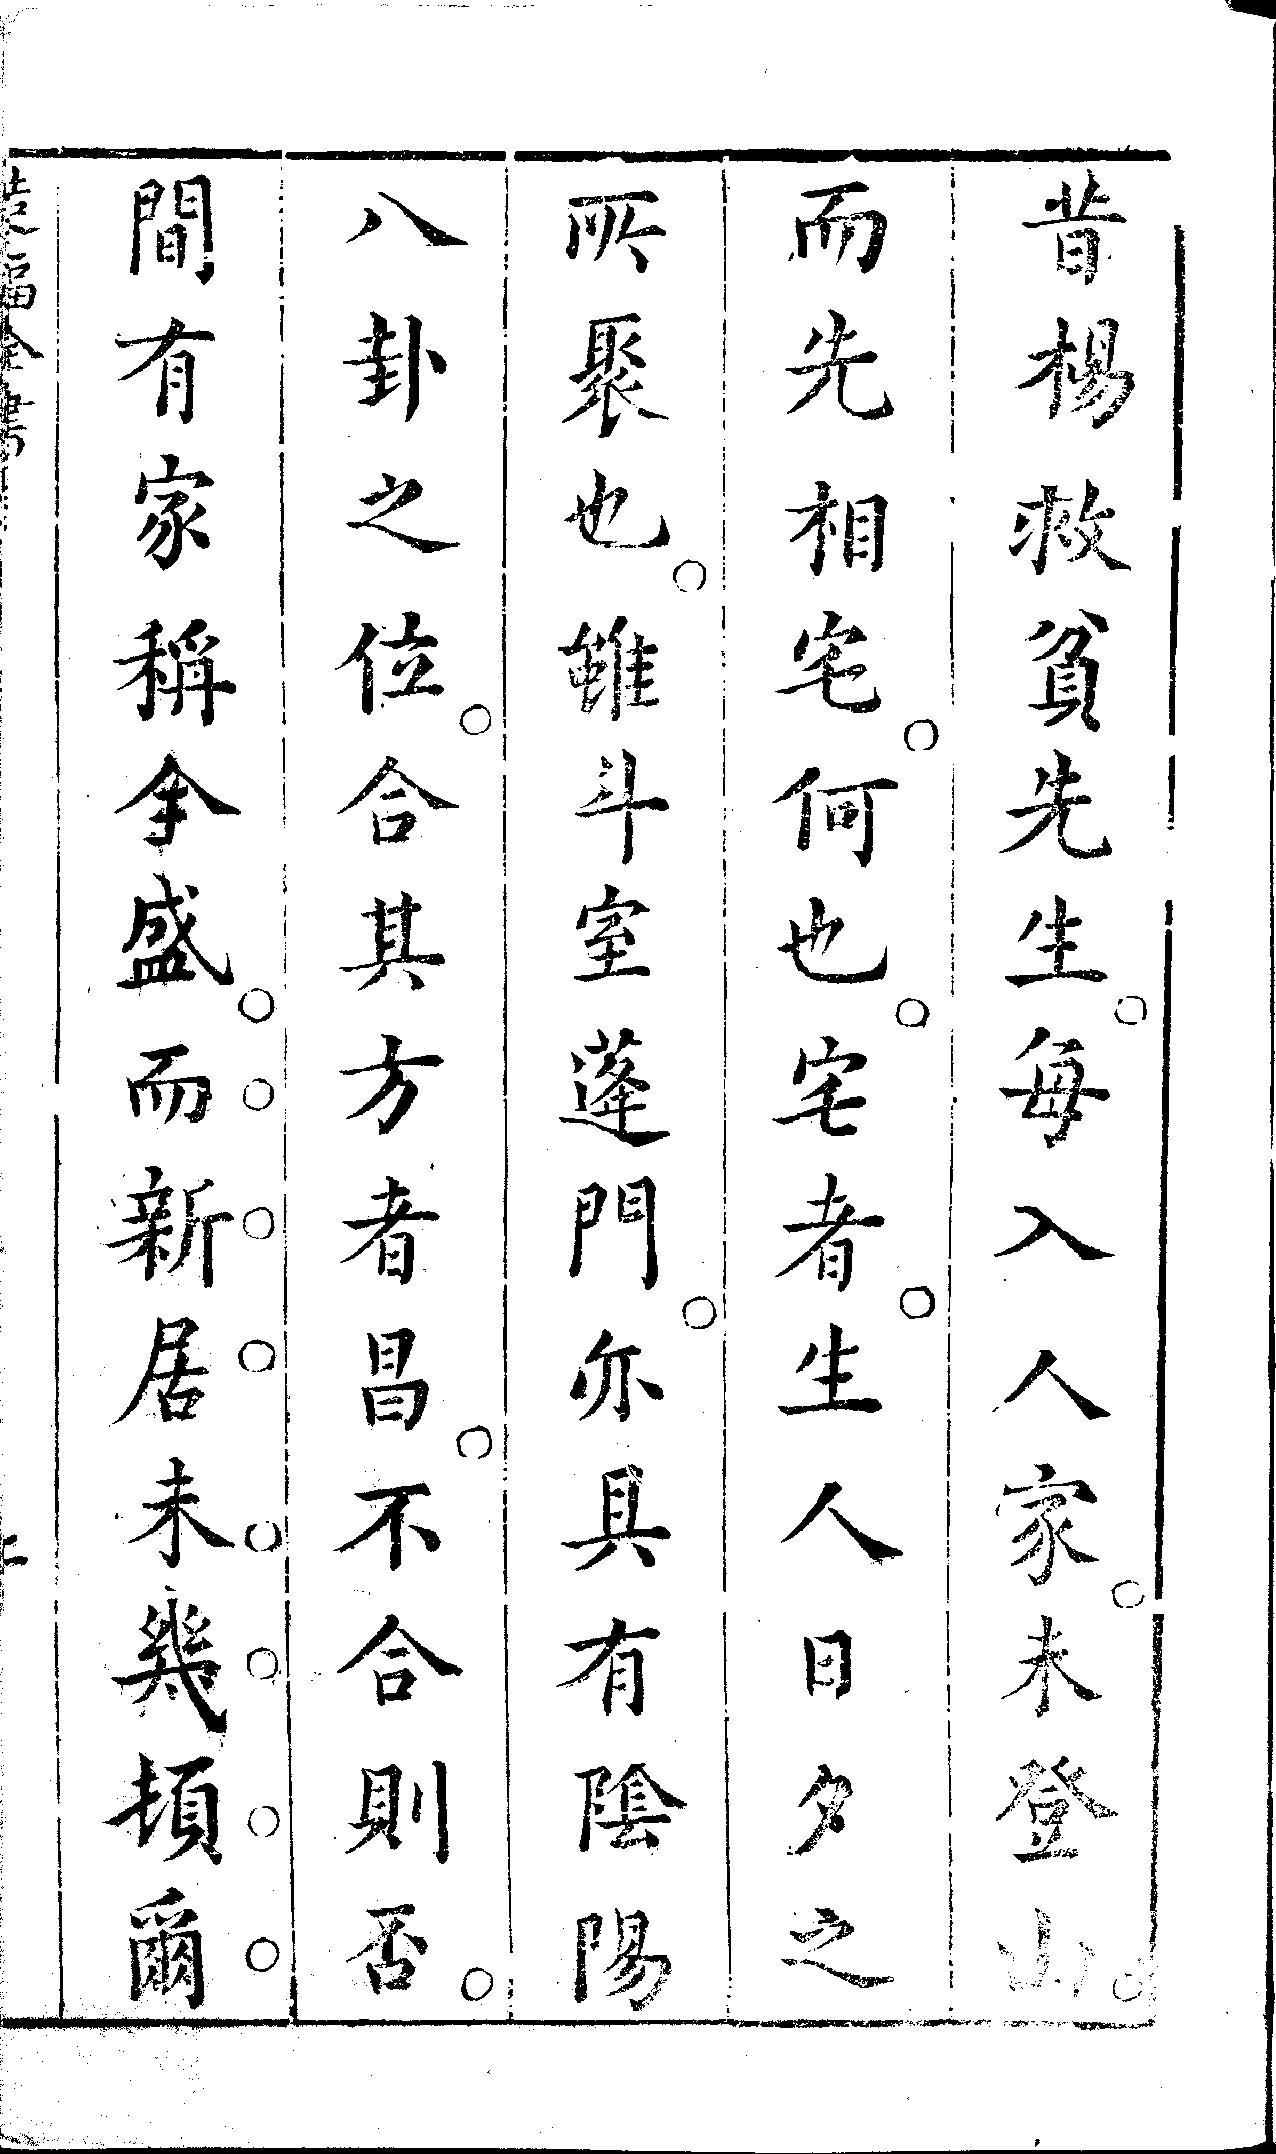 昔楊救貧先生○每入人家○未登山○
而先相宅○何也○宅者○生人日夕之
所聚也○雖斗室蓬門○亦具有陰陽
八卦之位○合其方者昌○不合則否○
間有家稱全盛○而○新○居○未○幾○頓○爾○
造福全書